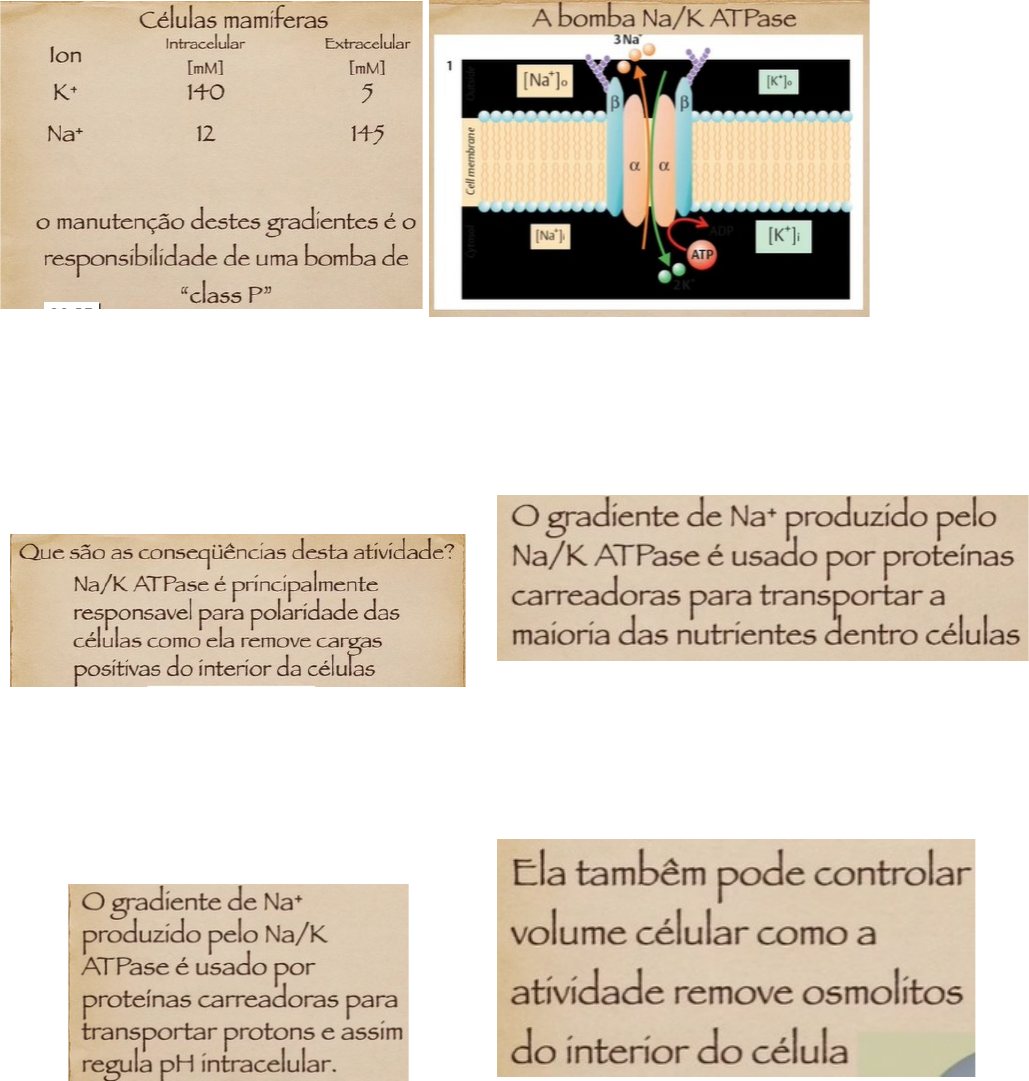 Células mamíferas
Ion Intracelular [mM] Extracelular [mM]
K⁺ 140 5
Na⁺ 12 145
o manutenção destes gradientes é o
responsibilidade de uma bomba de
“class P”
A bomba Na/K ATPase
3Na⁺
1
Outside
[Na⁺]o
[K⁺]o
β
β
Cell membrane
α
α
Cytosol
[Na⁺]i
ADP
[K⁺]i
ATP
2K⁺
Que são as conseqüências desta atividade?
Na/K ATPase é principalmente
responsavel para polaridade das
células como ela remove cargas
positivas do interior da células
O gradiente de Na⁺ produzido pelo
Na/K ATPase é usado por proteínas
carreadoras para transportar a
maioria das nutrientes dentro células
O gradiente de Na⁺
produzido pelo Na/K
ATPase é usado por
proteínas carreadoras para
transportar protons e assim
regula pH intracelular.
Ela tambêm pode controlar
volume célular como a
atividade remove osmolitos
do interior do célula